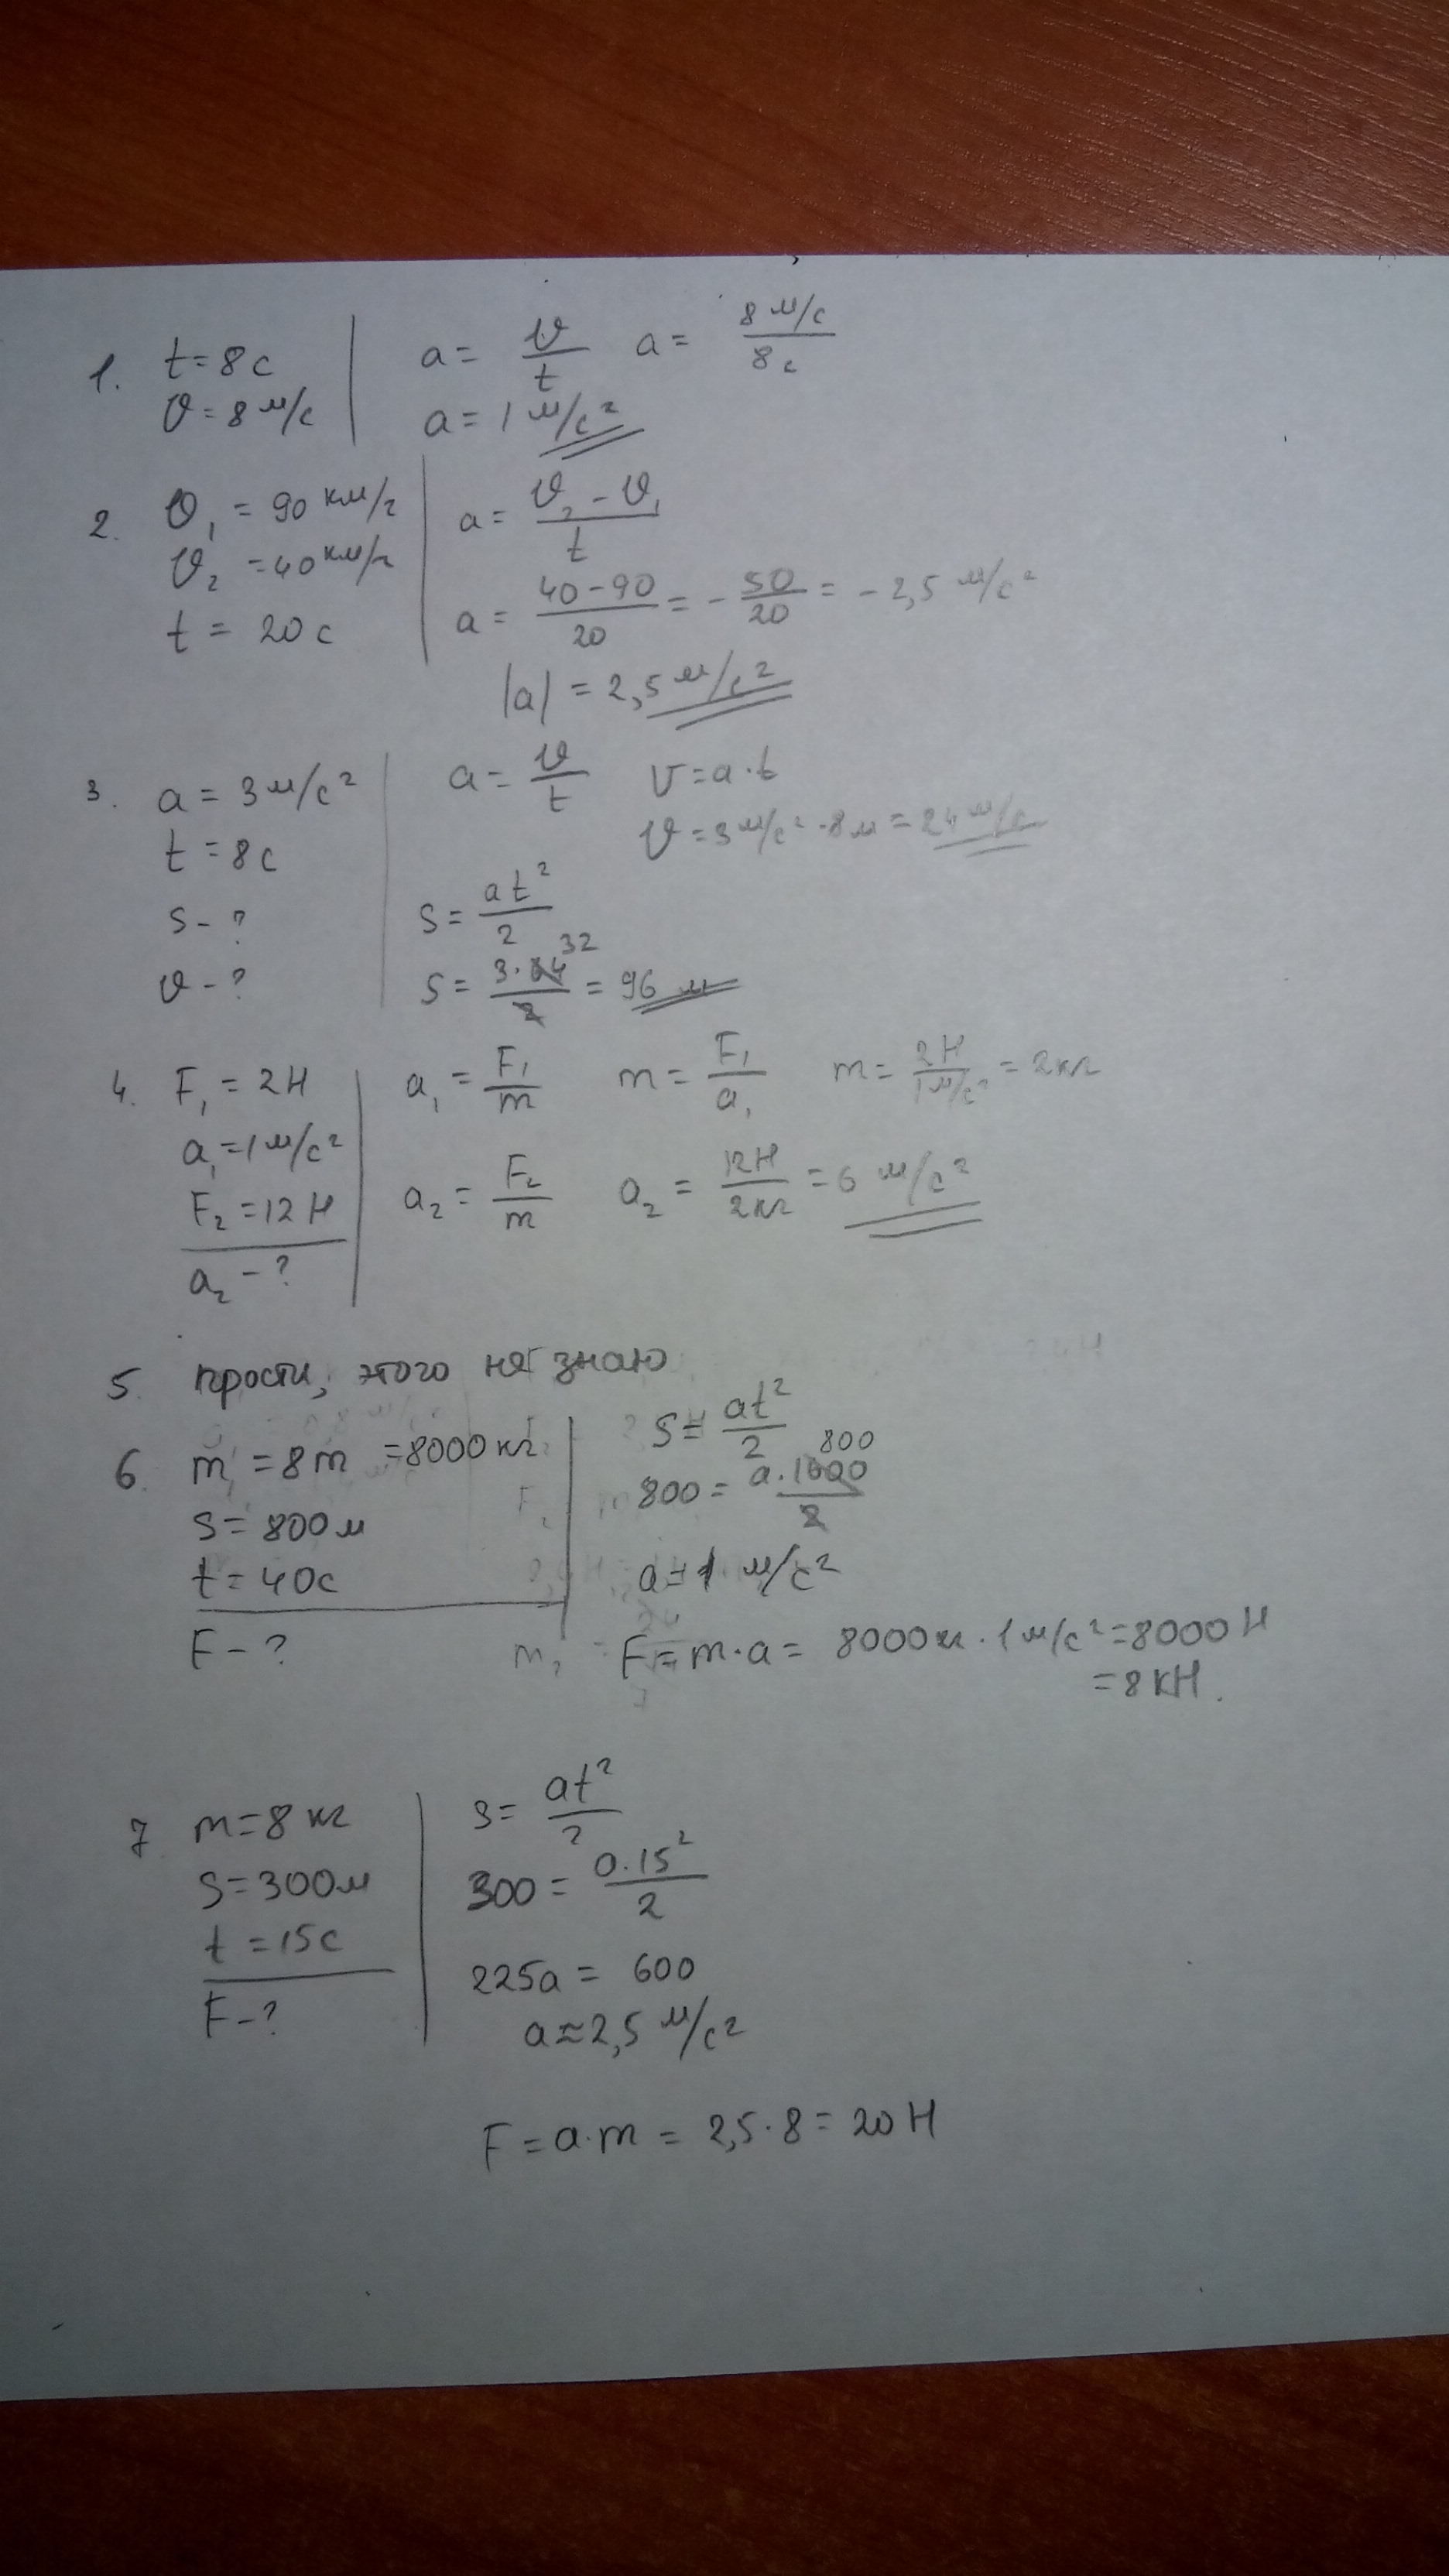 1. t = 8 с
υ = 8 м/с
a = υ/t a = 8 м/с / 8 с
a = 1 м/с²
2. υ₁ = 90 км/г
υ₂ = 40 км/г
t = 20 с
a = υ₂ - υ₁ / t
a = 40 - 90 / 20 = - 50/20 = - 2,5 м/с²
|a| = 2,5 м/с²
3. a = 3 м/с²
t = 8 с
s - ?
υ - ?
a = υ/t υ = a · t
υ = 3 м/с² · 8 м = 24 м/с
s = at²/2
s = 3 · 64/2 32 = 96 м
4. F₁ = 2 Н
a₁ = 1 м/с²
F₂ = 12 Н
a₂ - ?
a₁ = F₁/m m = F₁/a₁ m = 2 Н / 1 м/с² = 2 кг
a₂ = F₂/m a₂ = 12 Н / 2 кг = 6 м/с²
5. прости, этого не знаю
6. m = 8 т = 8000 кг
s = 800 м
t = 40 с
F - ?
s = at²/2
800 = a · 1600/2 800
a = 1 м/с²
F = m · a = 8000 кг · 1 м/с² = 8000 Н
= 8 кН.
7 m = 8 кг
s = 300 м
t = 15 с
F - ?
s = at²/2
300 = a · 15²/2
225a = 600
a ≈ 2,5 м/с²
F = a · m = 2,5 · 8 = 20 Н